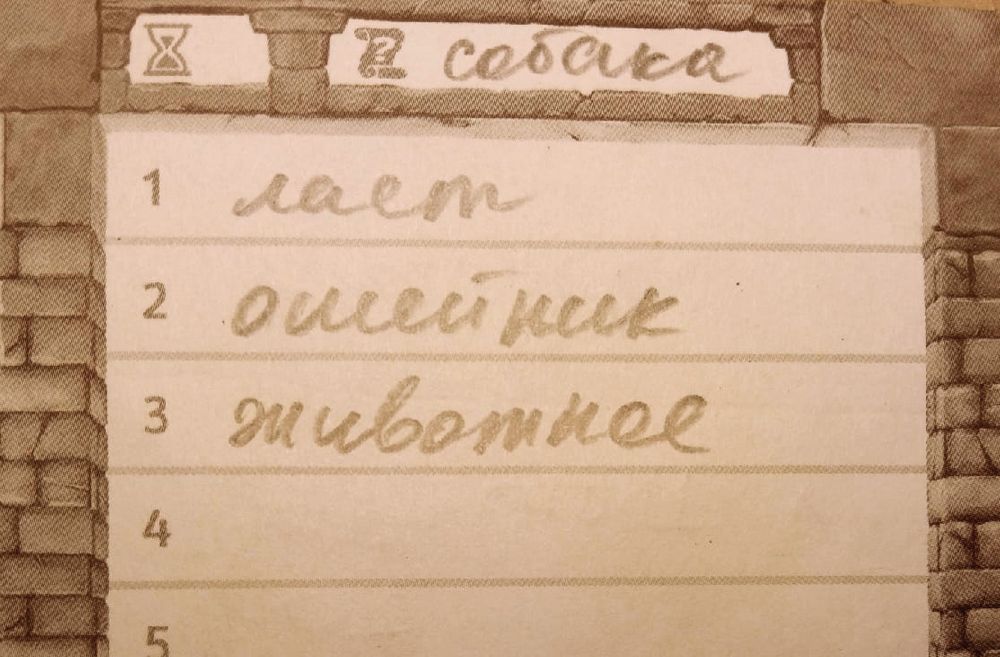 собака
1 лает
2 ошейник
3 животное
4
5